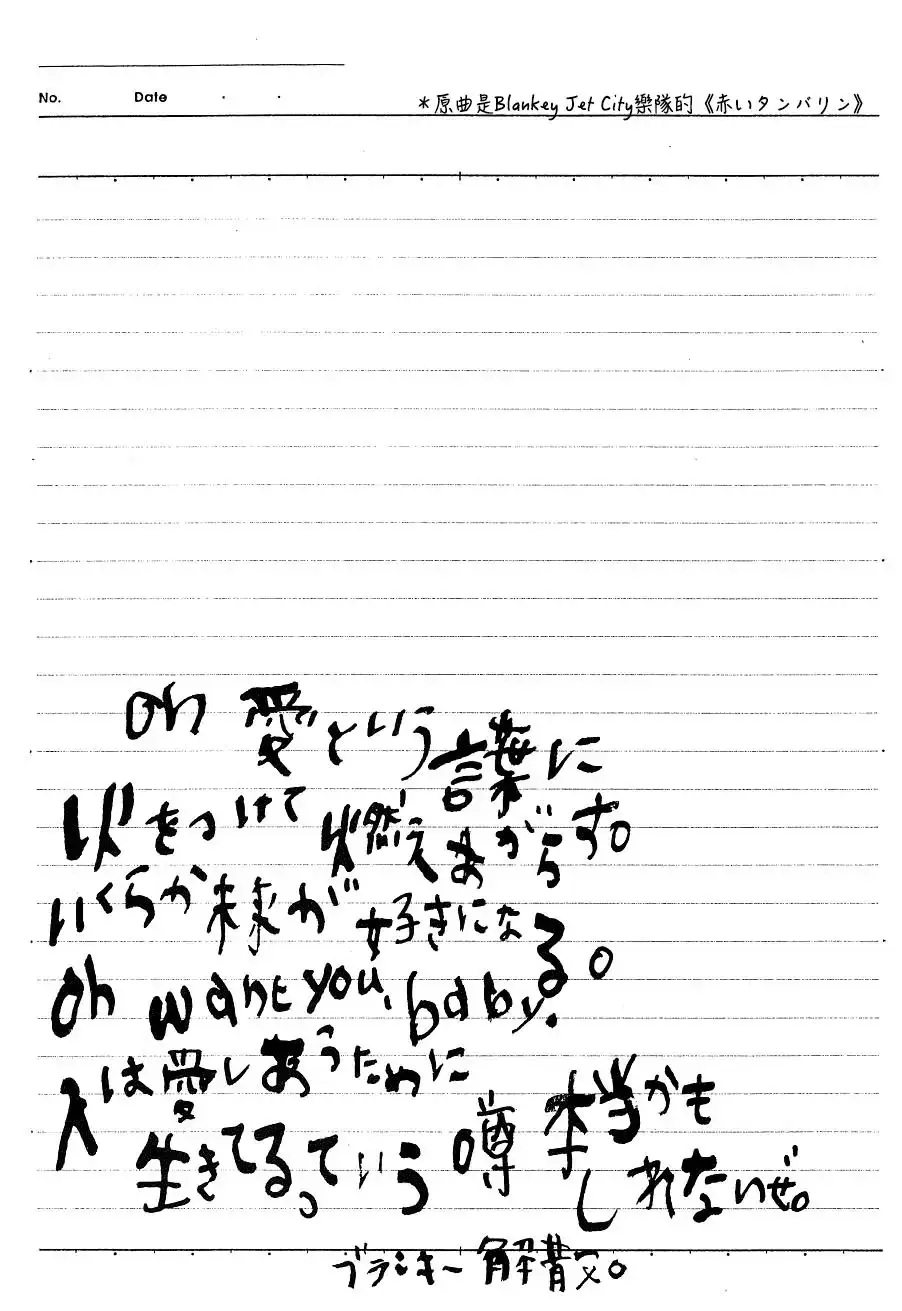 No. Date
*原曲是Blankey Jet City樂隊的《赤いタンバリン》
oh 愛という言葉に
火をつけて 燃えあがらす。
いくらか様が好きになる。
oh want you, baby.
人は愛しあうために
生きてるっていう噂 本当かも
しれないぜ。
ブランキー解散。